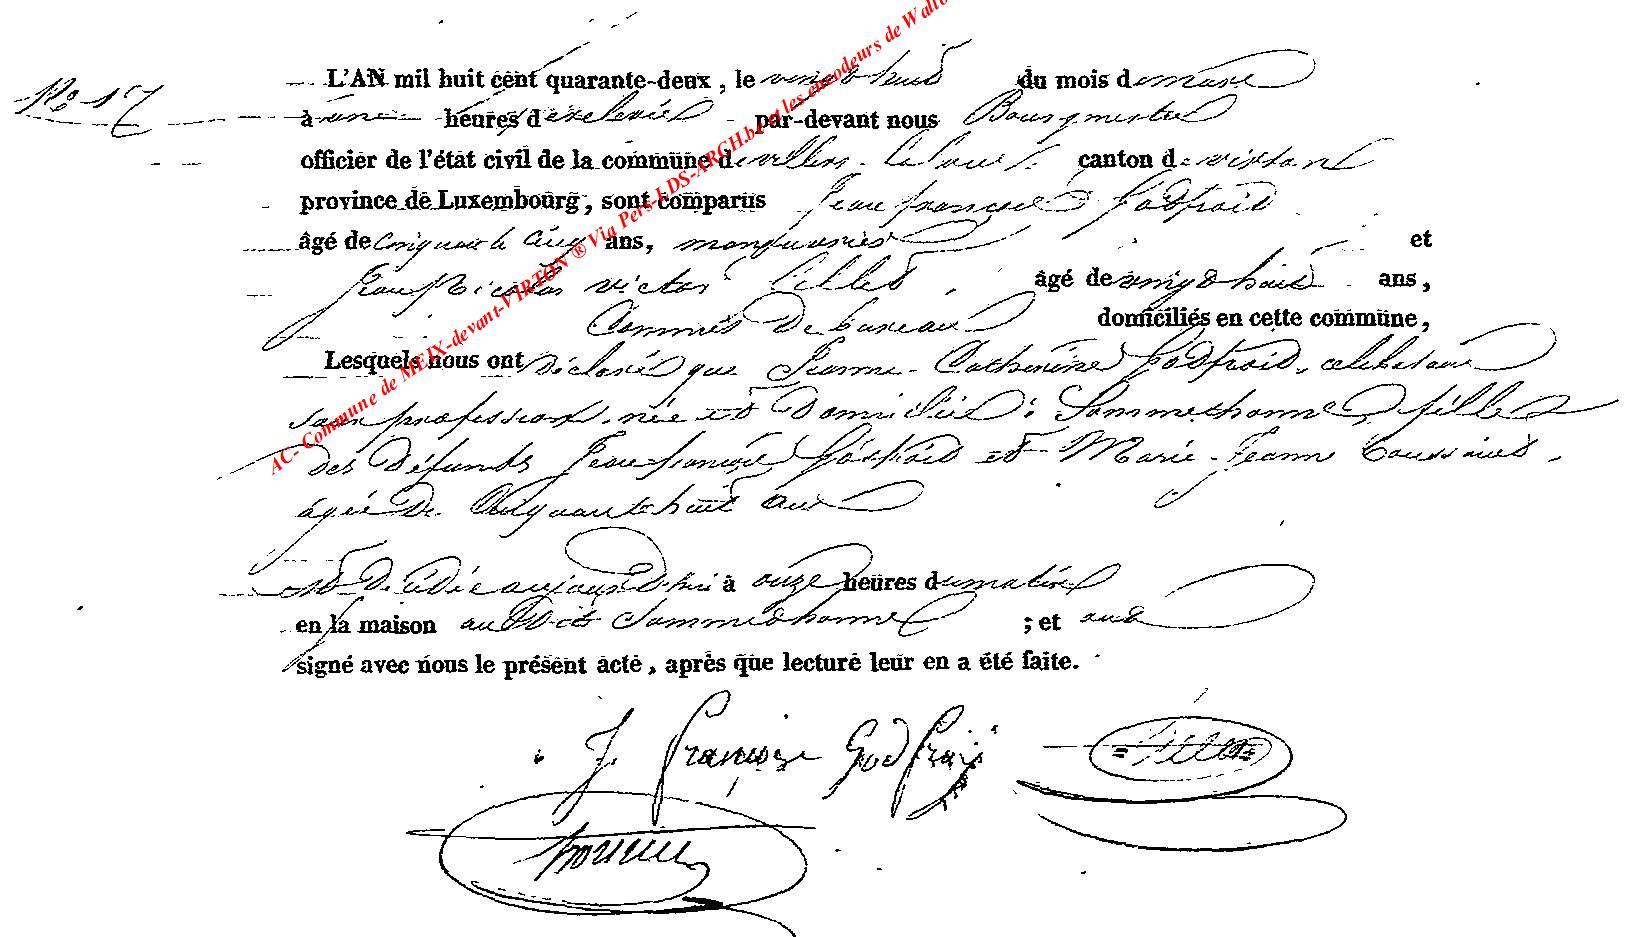 AC- Commune de MEIX-devant-VIRTON ® Via Pers-LDS-ARCH.be et les encodeurs de Wallo
No 17
L'AN mil huit cent quarante-deux, le vingt huit du mois de mars
à une heures de relevée par-devant nous Bourgmestre
officier de l'état civil de la commune de villers-la loue canton de virton
province de Luxembourg, sont comparus Jean françois Godfroid
âgé de cinquante cinq ans, manouvrier et
Jean Nicolas victor Tillot, âgé de vingt huit ans,
Commis de bureau domiciliés en cette commune,
Lesquels nous ont déclaré que Jeanne-Catherine Godfroid, celibataire
sans profession, née et domiciliée à Sommethonne, fille
des défunts Jean françois Godfroid et Marie-Jeanne Toussaint,
agée de Cinquante huit ans
est décédée aujourd'hui à onze heures du matin
en la maison audit Sommethonne ; et ont
signé avec nous le présent acte, après que lecture leur en a été faite.
J. françoise Godfroij Tillot